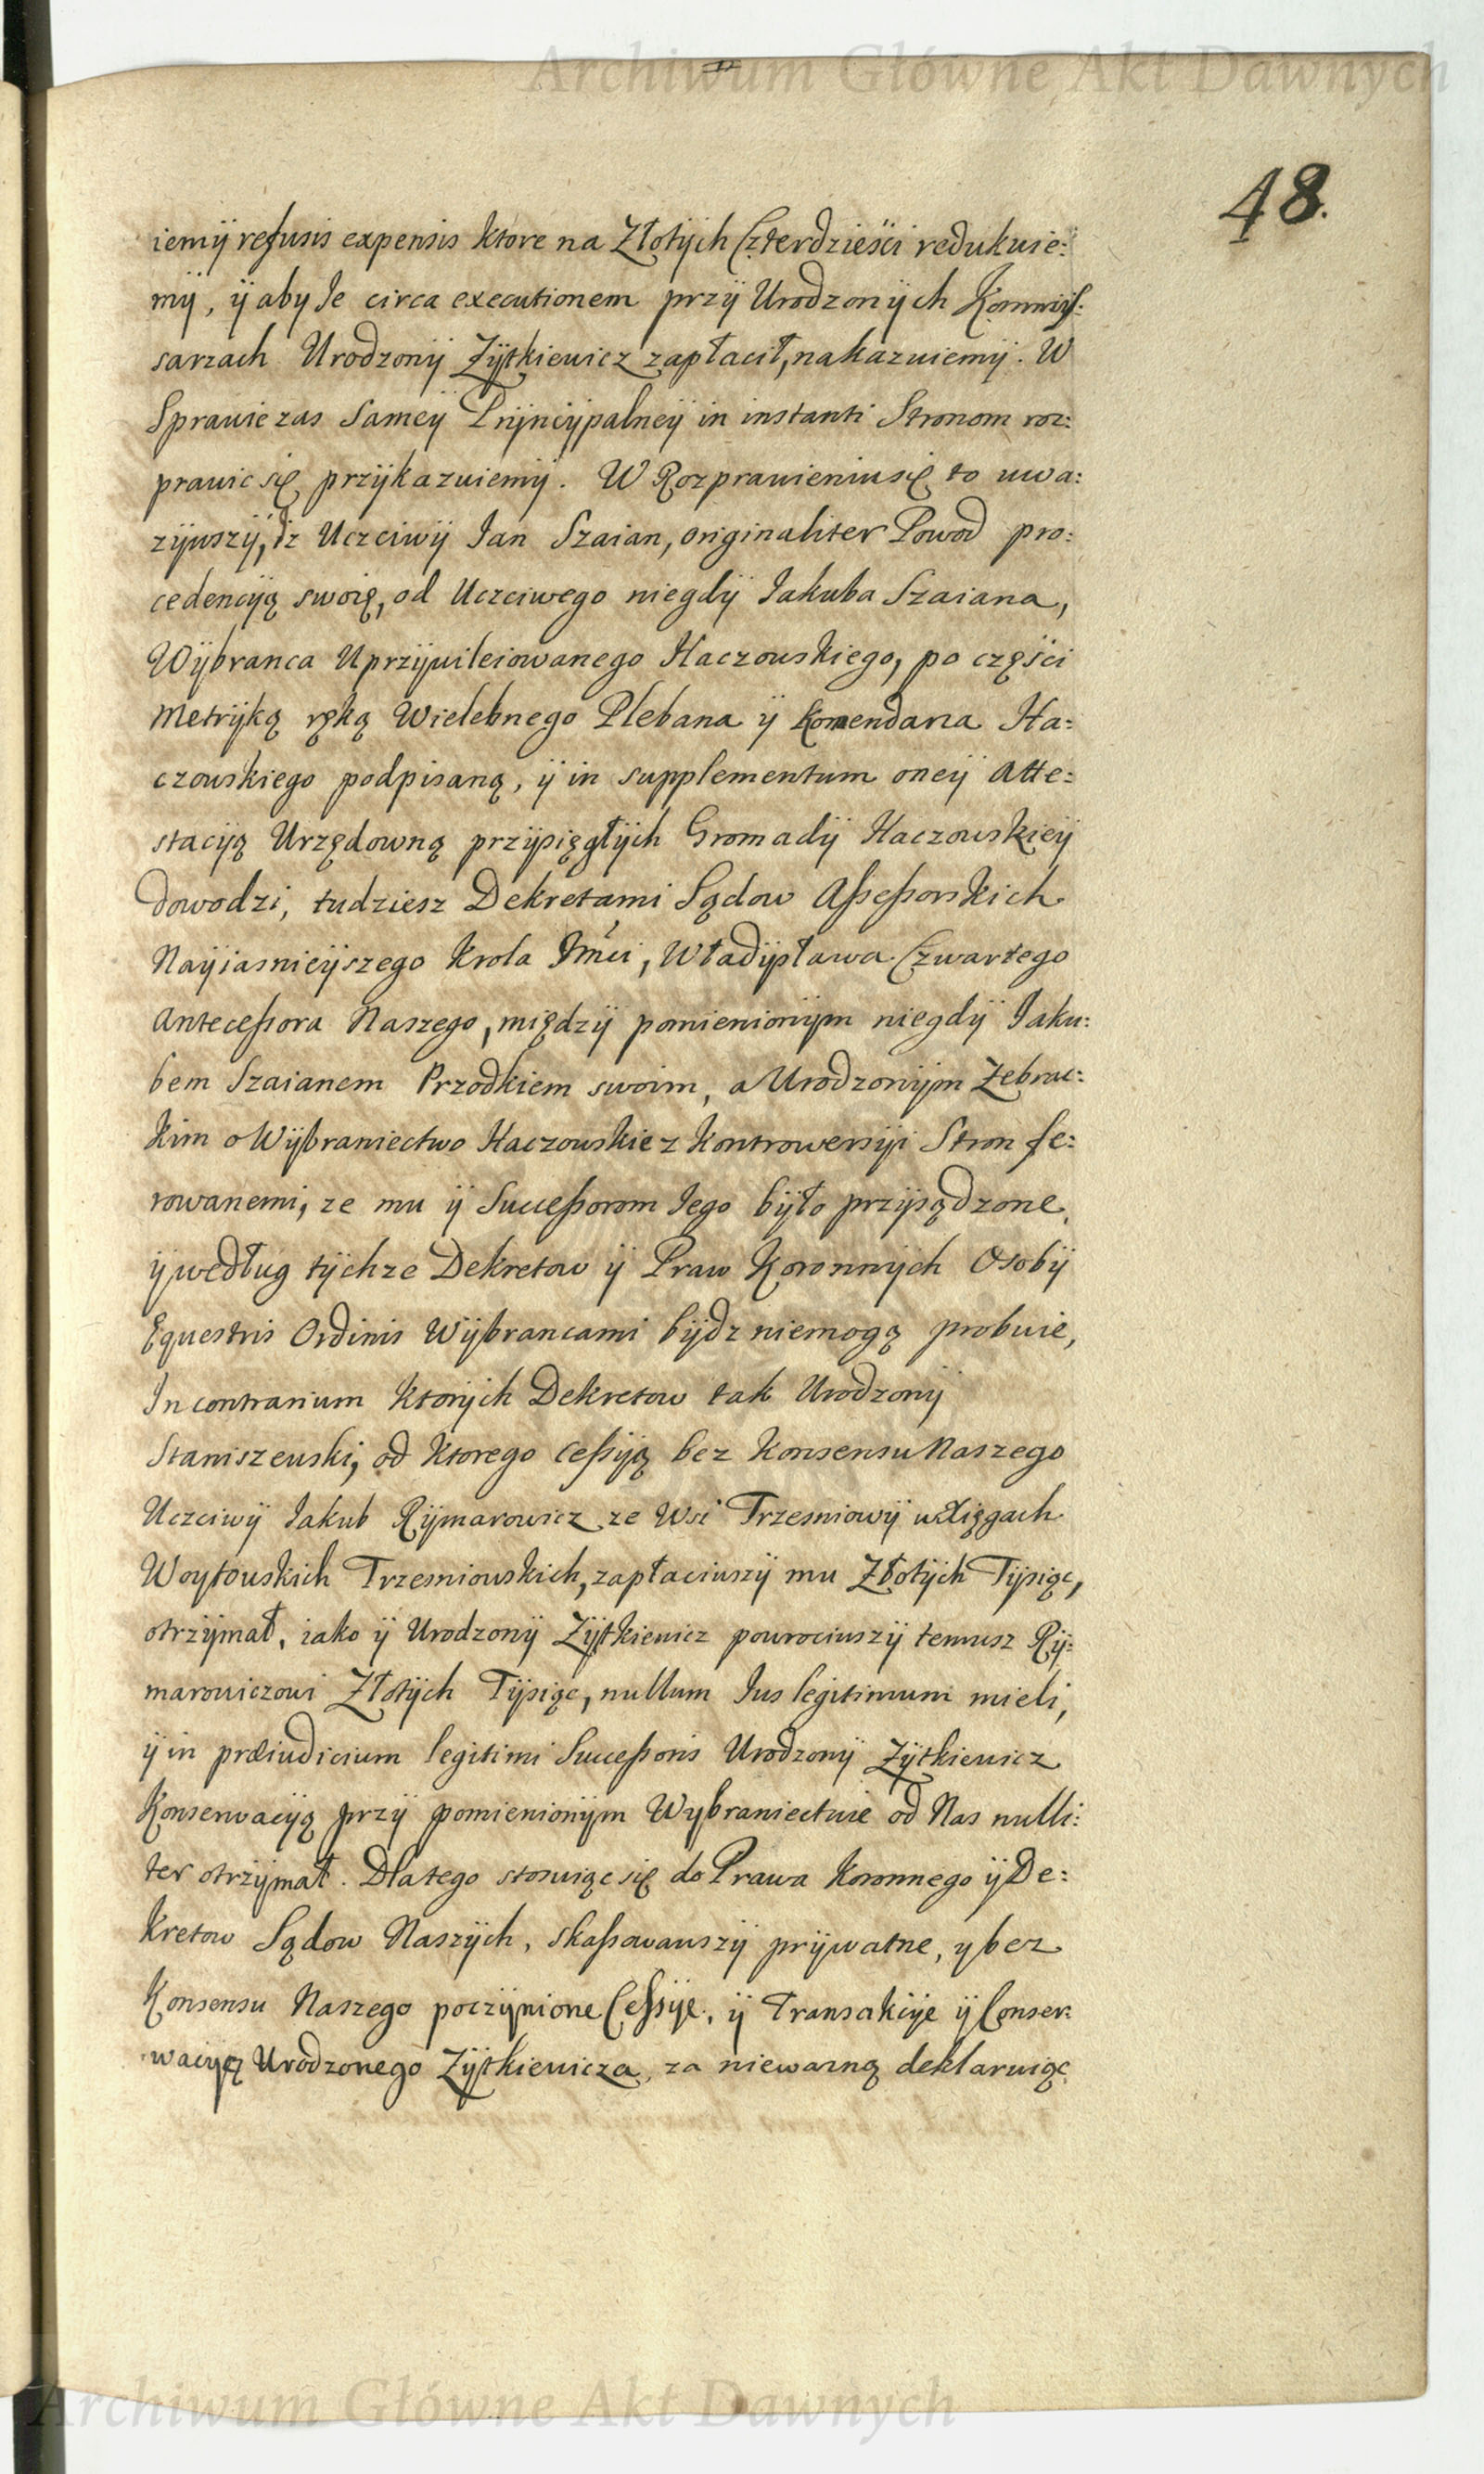 Archiwum Główne Akt Dawnych
48.
iemÿ refusis expensis ktore na Złotÿch Czterdzieści redukuie:
mÿ, ÿ aby Ie circa executionem przÿ Urodzonÿch Kommis:
sarzach Urodzonÿ Zÿtkiewicz zapłacił, nakazuiemÿ. W
Sprawie zas Sameÿ Prÿncÿpalneÿ in instanti Stronom roz:
prawic się przÿkazuiemÿ. W Rozprawieniu się to uwa:
zÿwszÿ, iz Uczciwÿ Ian Szaian, originaliter Powod pro:
cedencÿą swoię, od Uczciwego niegdÿ Iakuba Szaiana,
Wÿbranca Uprzÿwileiowanego Haczowskiego, po częśći
Metrÿką ręką Wielebnego Plebana ÿ Komendarza Ha:
czowskiego podpisaną, ÿ in supplementum oneÿ Atte:
stacÿą Urzędowną przÿsięgłÿch Gromadÿ Haczowskieÿ
dowodzi, tudziesz Dekretami Sądow Aßeßorskich
Naÿiasnieÿszego Krola Imci, Władÿsława Czwartego
Anteceßora Naszego, międzÿ pomienionÿm niegdÿ Iaku:
bem Szaianem Przodkiem swoim, a Urodzonÿm Zebrac:
kim o Wÿbraniectwo Haczowskie z Kontrowersÿi Stron fe:
rowanemi, ze mu ÿ Succeßorom Iego bÿło przÿsądzone,
ÿ według tÿchze Dekretow ÿ Praw Koronnÿch Osobÿ
Equestris Ordinis Wÿbrancami bÿdz niemogą probuie,
In contrarium ktorÿch Dekretow tak Urodzonÿ
Staniszewski, od ktorego ceßÿą bez Konsensu Naszego
Uczciwÿ Iakub Rÿmarowicz ze Wsi Trzesniowÿ w Xięgach
Woÿtowskich Trzesniowskich, zapłaciwszÿ mu Złotÿch Tÿsiąc,
otrzÿmał, iako ÿ Urodzonÿ Zÿtkiewicz powrociwszÿ temusz Rÿ:
marowiczowi Złotÿch Tÿsiąc, nullum Ius legitimum mieli,
ÿ in præiudicium legitimi Succeßoris Urodzonÿ Zÿtkiewicz
Konserwacÿą przÿ pomienionÿm Wybraniectwie od Nas nulli:
ter otrzÿmał. Dlatego stosuiąc się do Prawa Koronnego ÿ De:
kretow Sądow Naszÿch, skaßowawszÿ prÿwatne, y bez
Konsensu Naszego poczÿnione Ceßÿe, ÿ Transakcÿe ÿ Conser:
wacÿą Urodzonego Zÿtkiewicza, za niewazną deklaruiąc
Archiwum Główne Akt Dawnych